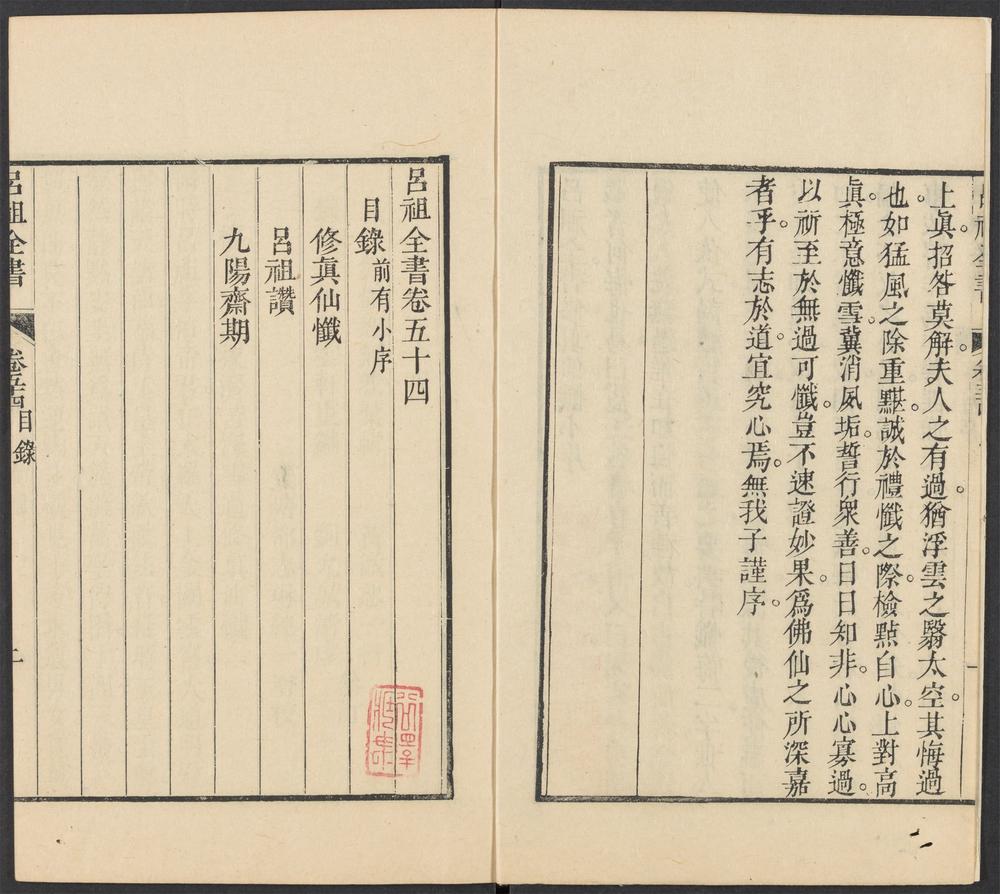 上眞招咎莫解夫人之有過猶浮雲之翳太空其悔過
也如猛風之除重䵝誠於禮懺之際檢點自心上對高
眞極意懺雪冀消夙垢誓行衆善日日知非心心寡過
以祈至於無過可懺豈不速證妙果爲佛仙之所深嘉
者乎有志於道宜究心焉無我子謹序
呂祖全書卷五十四
目錄前有小序
修眞仙懺
呂祖讚
九陽齋期
呂祖全書
卷五十四目錄
一